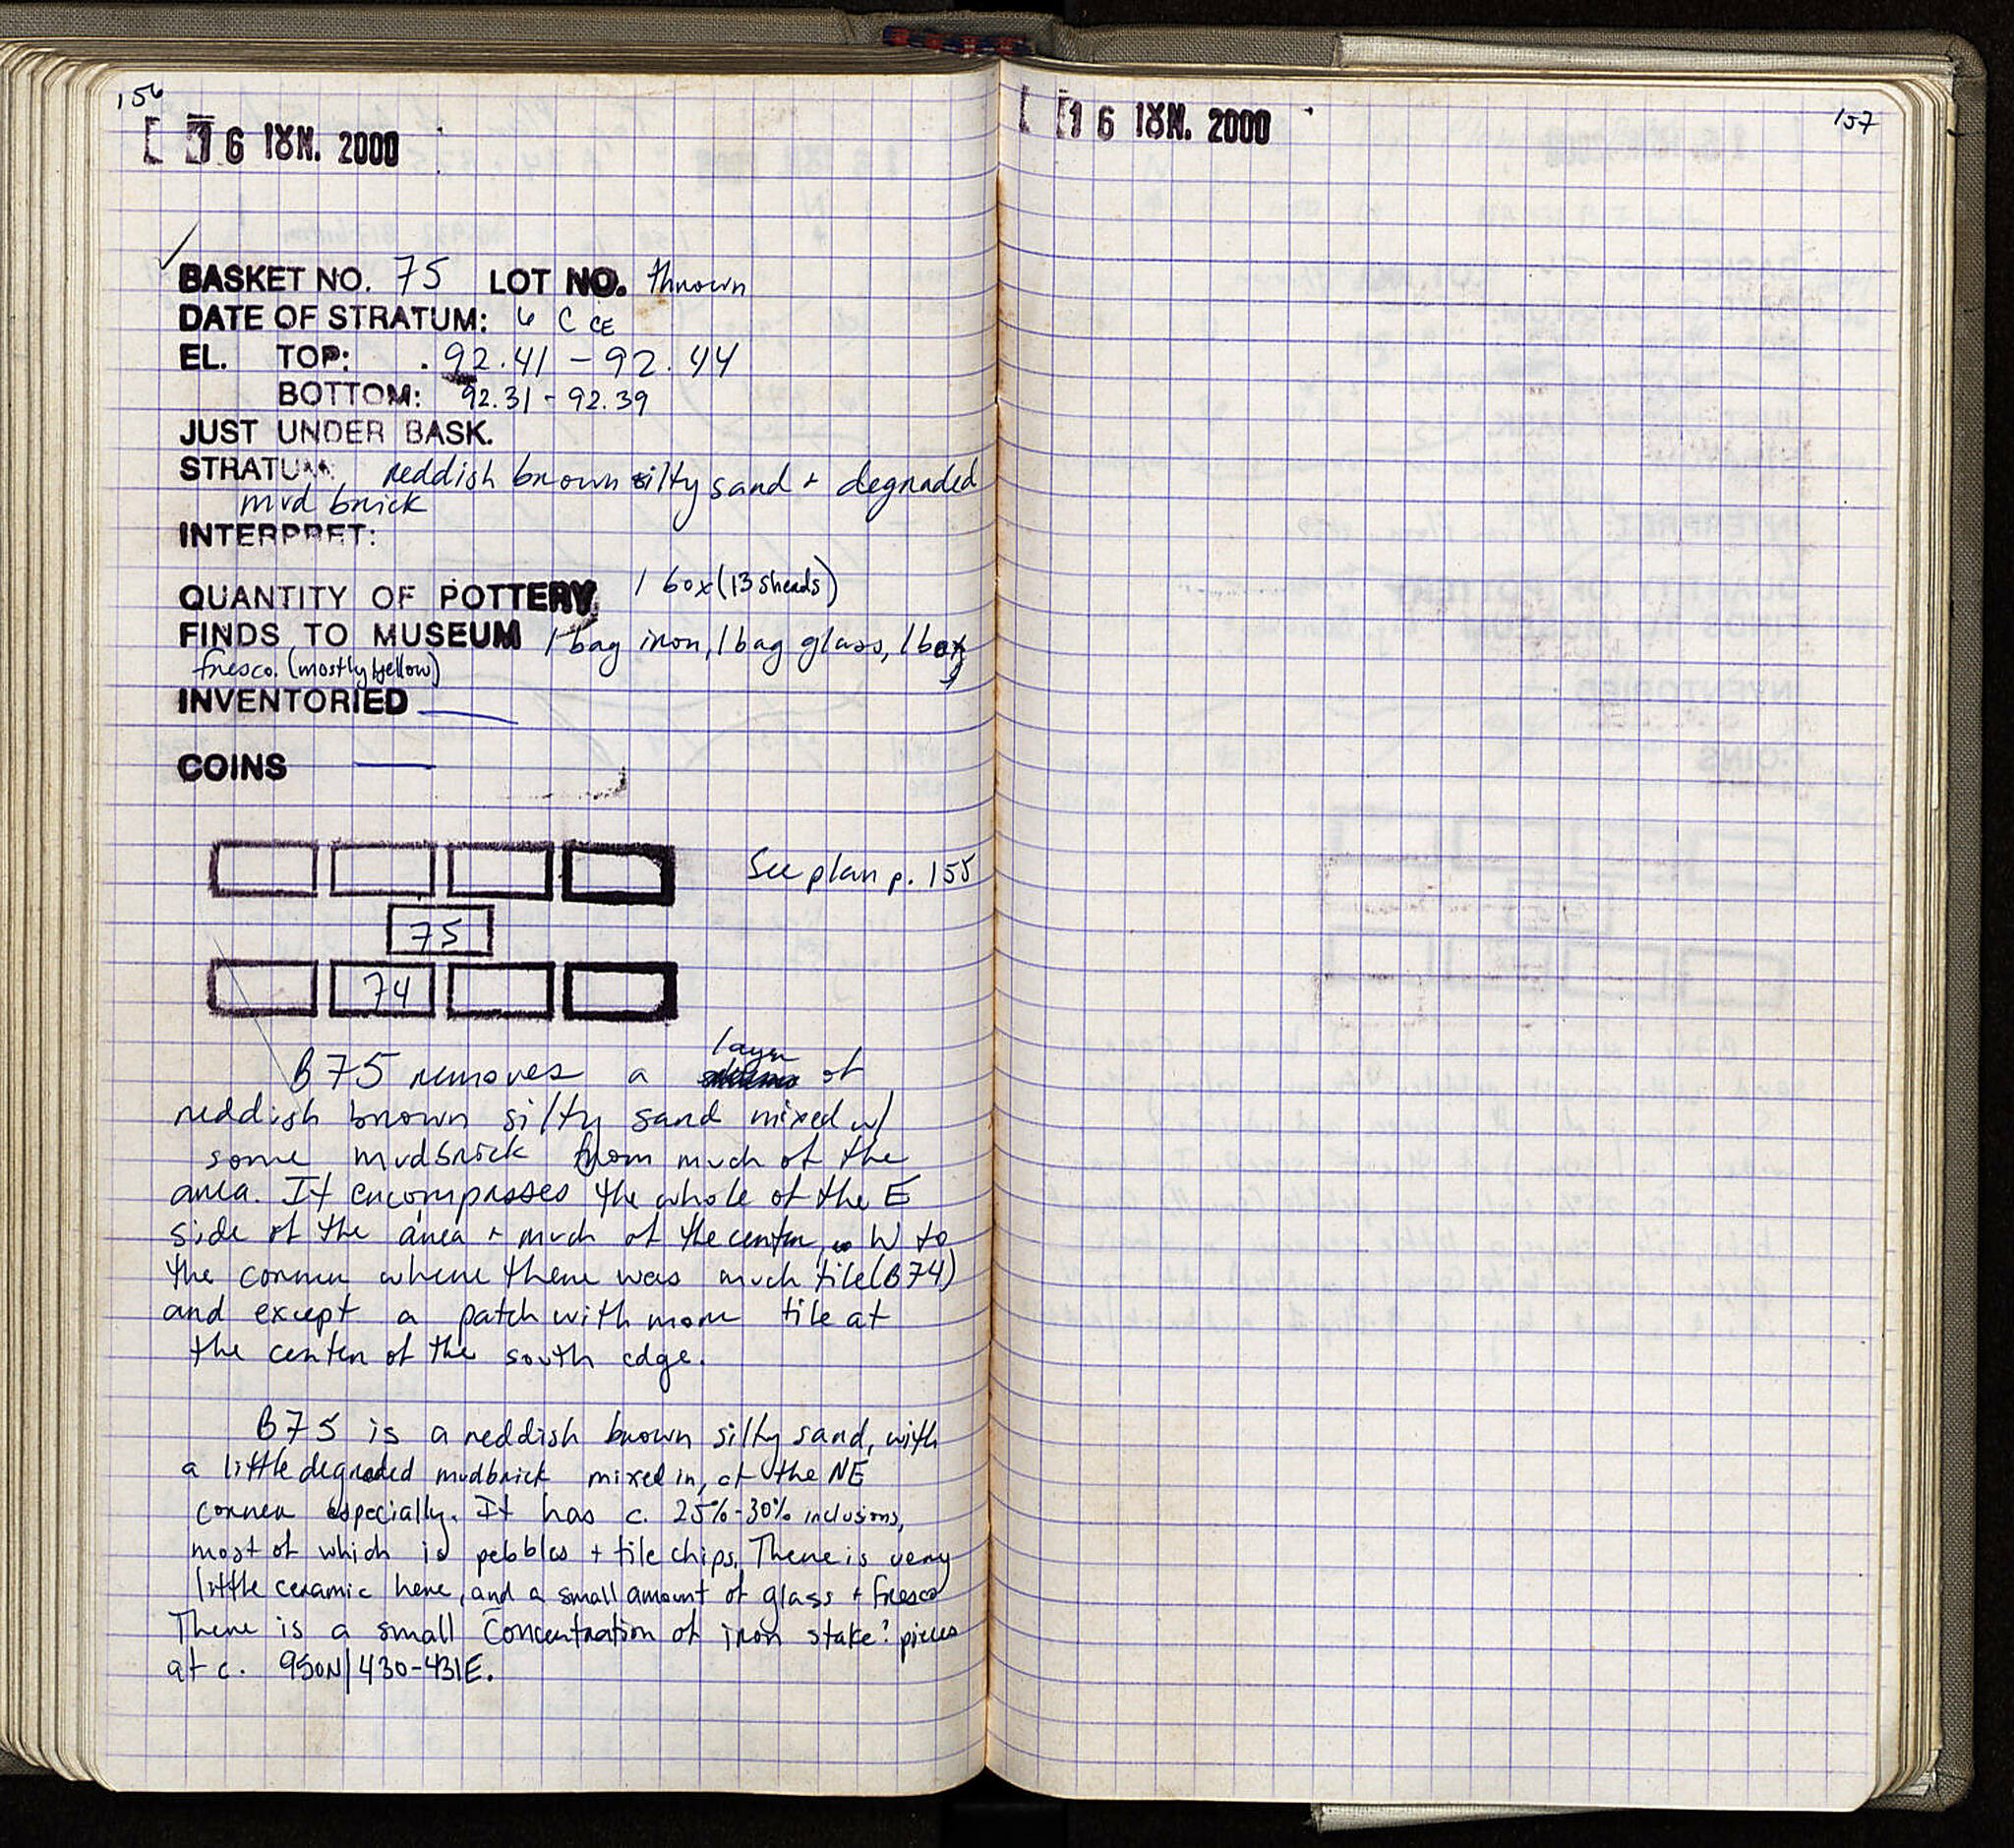 156
16 ΙΟΥΝ. 2000
BASKET NO. 75 LOT NO. thrown
DATE OF STRATUM: 6 C CE
EL. TOP: 92.41 - 92.44
BOTTOM: 92.31 - 92.39
JUST UNDER BASK.
STRATUM: reddish brown silty sand + degraded
mud brick
INTERPRET:
QUANTITY OF POTTERY 1 box (13 sherds)
FINDS TO MUSEUM 1 bag iron, 1 bag glass, 1 bag
fresco. (mostly yellow)
INVENTORIED —
COINS —
See plan p. 155
75
74
layer
B75 removes a of
reddish brown silty sand mixed w/
some mudbrick from much of the
area. It encompasses the whole of the E
side of the area + much of the center, W to
the corner where there was much tile (B74)
and except a patch with more tile at
the center of the south edge.
B75 is a reddish brown silty sand, with
a little degraded mudbrick mixed in, at the NE
corner especially. It has c. 25%-30% inclusions,
most of which is pebbles + tile chips. There is very
little ceramic here, and a small amount of glass + fresco
There is a small concentration of iron stake? pieces
at c. 950N/430-431E.
16 ΙΟΥΝ. 2000
157